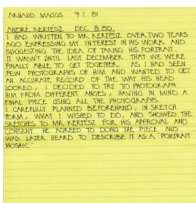 ARNAUD MAGGS 9.1.81
ANDRÉ KERTÉSZ DEC. 8.80
I HAD WRITTEN TO MR. KERTÉSZ OVER TWO YEARS
AGO EXPRESSING MY INTEREST IN HIS WORK AND
SUGGESTING THE IDEA OF TAKING HIS PORTRAIT.
IT WASN'T UNTIL LAST DECEMBER THAT WE WERE
FINALLY ABLE TO GET TOGETHER. AS I HAD SEEN
FEW PHOTOGRAPHS OF HIM AND WANTED TO GET
AN ACCURATE RECORD OF THE WAY HIS HEAD
LOOKED, I DECIDED TO TRY TO PHOTOGRAPH
HIM FROM DIFFERENT ANGLES, HAVING IN MIND A
FINAL PIECE USING ALL THE PHOTOGRAPHS.
I CAREFULLY PLANNED BEFOREHAND, IN SKETCH
FORM, WHAT I WISHED TO DO, AND SHOWED THE
SKETCHES TO MR. KERTÉSZ FOR HIS APPROVAL AND
CONSENT. HE AGREED TO DOING THE PIECE AND
WAS LATER HEARD TO DESCRIBE IT AS A PORTRAIT
MOSAIC.